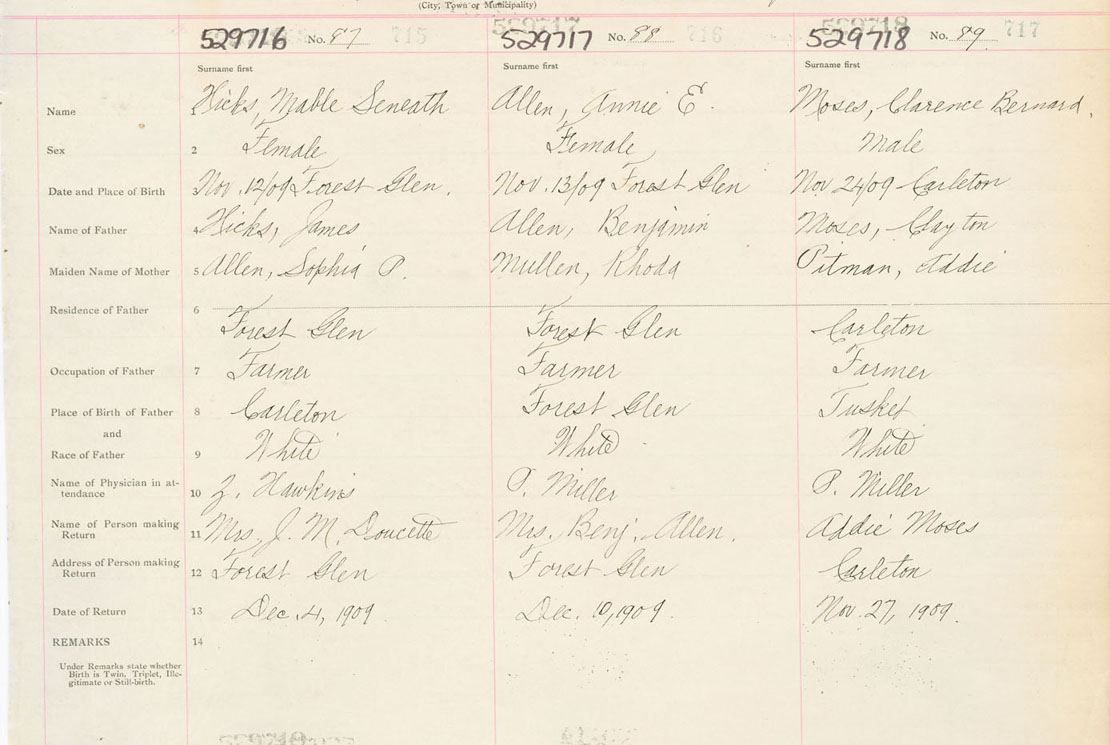 (City, Town or Municipality)
529716 No. 87 715 529717 No. 88 716 529718 No. 89 717
Surname first Surname first Surname first
Name 1 Hicks, Mable Seneath Allen, Annie E. Moses, Clarence Bernard.
Sex 2 Female Female Male
Date and Place of Birth 3 Nov. 12/09 Forest Glen. Nov. 13/09 Forest Glen Nov 24/09 Carleton
Name of Father 4 Hicks, James Allen, Benjamin Moses, Clayton
Maiden Name of Mother 5 Allen, Sophia P. Mullen, Rhoda Pitman, Addie
Residence of Father 6
Forest Glen Forest Glen Carleton
Occupation of Father 7 Farmer Farmer Farmer
Place of Birth of Father 8 Carleton Forest Glen Tusket
and
Race of Father 9 White White White
Name of Physician in at-
tendance 10 Z. Hawkins P. Miller P. Miller
Name of Person making
Return 11 Mrs. J. M. Doucette Mrs. Benj. Allen. Addie Moses
Address of Person making
Return 12 Forest Glen Forest Glen Carleton
Date of Return 13 Dec. 4, 1909. Dec. 10, 1909. Nov. 27, 1909.
REMARKS 14
Under Remarks state whether
Birth is Twin, Triplet, Ille-
gitimate or Still-birth.